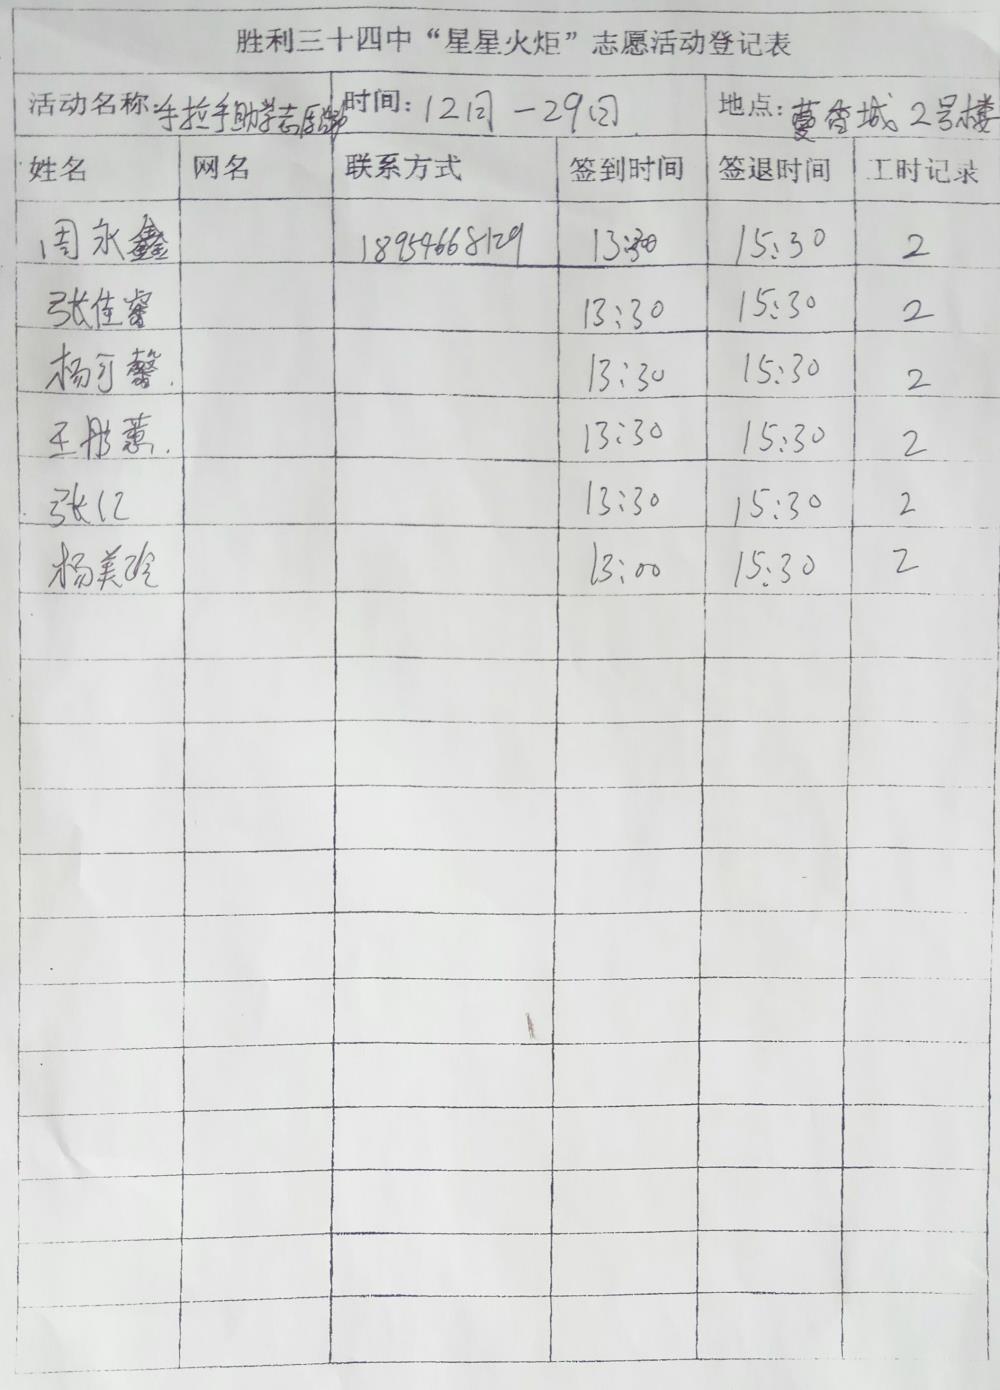 胜利三十四中“星星火炬”志愿活动登记表
活动名称:手拉手助学志愿 时间:12月-29日 地点:蔓香城2号楼
姓名 网名 联系方式 签到时间 签退时间 工时记录
周永鑫 18954668129 13:30 15:30 2
张佳睿 13:30 15:30 2
杨可馨 13:30 15:30 2
王彤蕙 13:30 15:30 2
张仁 13:30 15:30 2
杨美玲 13:00 15:30 2